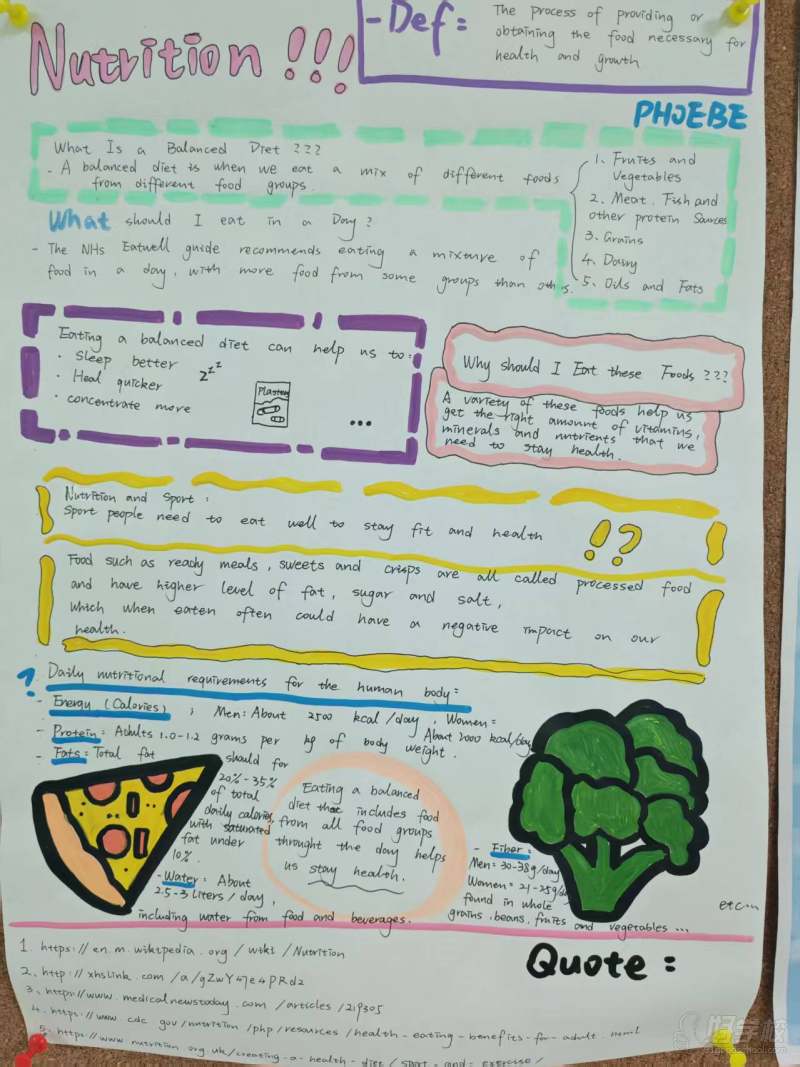 Nutrition !!!
- Def =
The process of providing or
obtaining the food necessary for
health and growth
PHOEBE
What Is a Balanced Diet ???
- A balanced diet is when we eat a mix of different foods
from different food groups.
1. Fruits and
Vegetables
2. Meat. Fish and
other protein Sources
3. Grains
4. Dairy
5. Oils and Fats
What should I eat in a Day?
- The NHs Eatwell guide recommends eating a mixture of
food in a day, with more food from some groups than others.
Eating a balanced diet can help us to:
· Sleep better
· Heal quicker
· concentrate more
zzz
Plasters
...
Why should I Eat these Foods ???
A variety of these foods help us
get the right amount of vitamins,
minerals and nutrients that we
need to stay health.
Nutrition and Sport:
Sport people need to eat well to stay fit and health
!?
Food such as ready meals, sweets and crisps are all called processed food
and have higher level of fat, sugar and salt,
which when eaten often could have a negative impact on our
health.
? Daily nutritional requirements for the human body:
- Energy (Calories) ; Men: About 2500 kcal/day, Women:
About 2000 kcal/day
- Protein: Adults 1.0-1.2 grams per kg of body weight.
- Fats: Total fat should for
20%-35%
of total
daily calories,
with saturated
fat under
10%.
- Water: About
2.5-3 liters/day,
including water from food and beverages.
Eating a balanced
diet that includes food
from all food groups
throught the day helps
us stay health.
- Fiber:
Men: 30-38g/day
Women: 21-25g/day
found in whole
grains, beans, fruits and vegetables ...
etc...
1. https://en.m.wikipedia.org/wiki/Nutrition
2. http://xhslink.com/a/gZwY47e4PRd2
3. https://www.medicalnewstoday.com/articles/219305
4. https://www.cdc.gov/nutrition/php/resources/health-eating-benefits-for-adult.html
5. https://www.nutrition.org.uk/creating-a-health-diet/sport-and-exercise/
Quote:
好学校